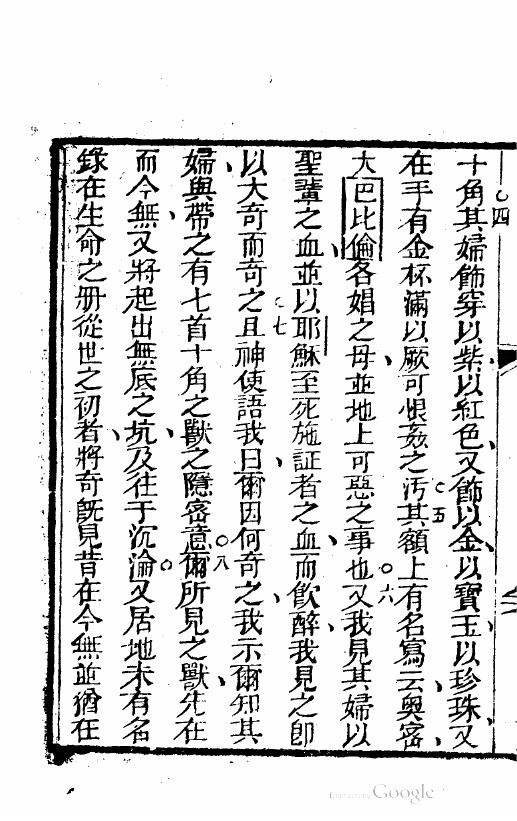 十角其婦飾穿以紫以紅色、又飾以金以寶玉、以珍珠、又
在手有金杯滿以厥可恨姦之汚其額上有名寫云、奥密、
大巴比倫各娼之母、並地上可惡之事也又我見其婦以
聖輩之血、並以耶穌至死施証者之血、而飲醉、我見之卽
以大奇而奇之且神使語我曰、爾因何奇之、我示爾知其
婦、與帶之有七首十角之獸之隱密意爾所見之獸、先在
而今無、又將起出無底之坑、及往于沉淪又居地未有名
錄在生命之册從世之初者、將奇旣見昔在今無並猶在
四
五
六
七
八
Digitized by Google